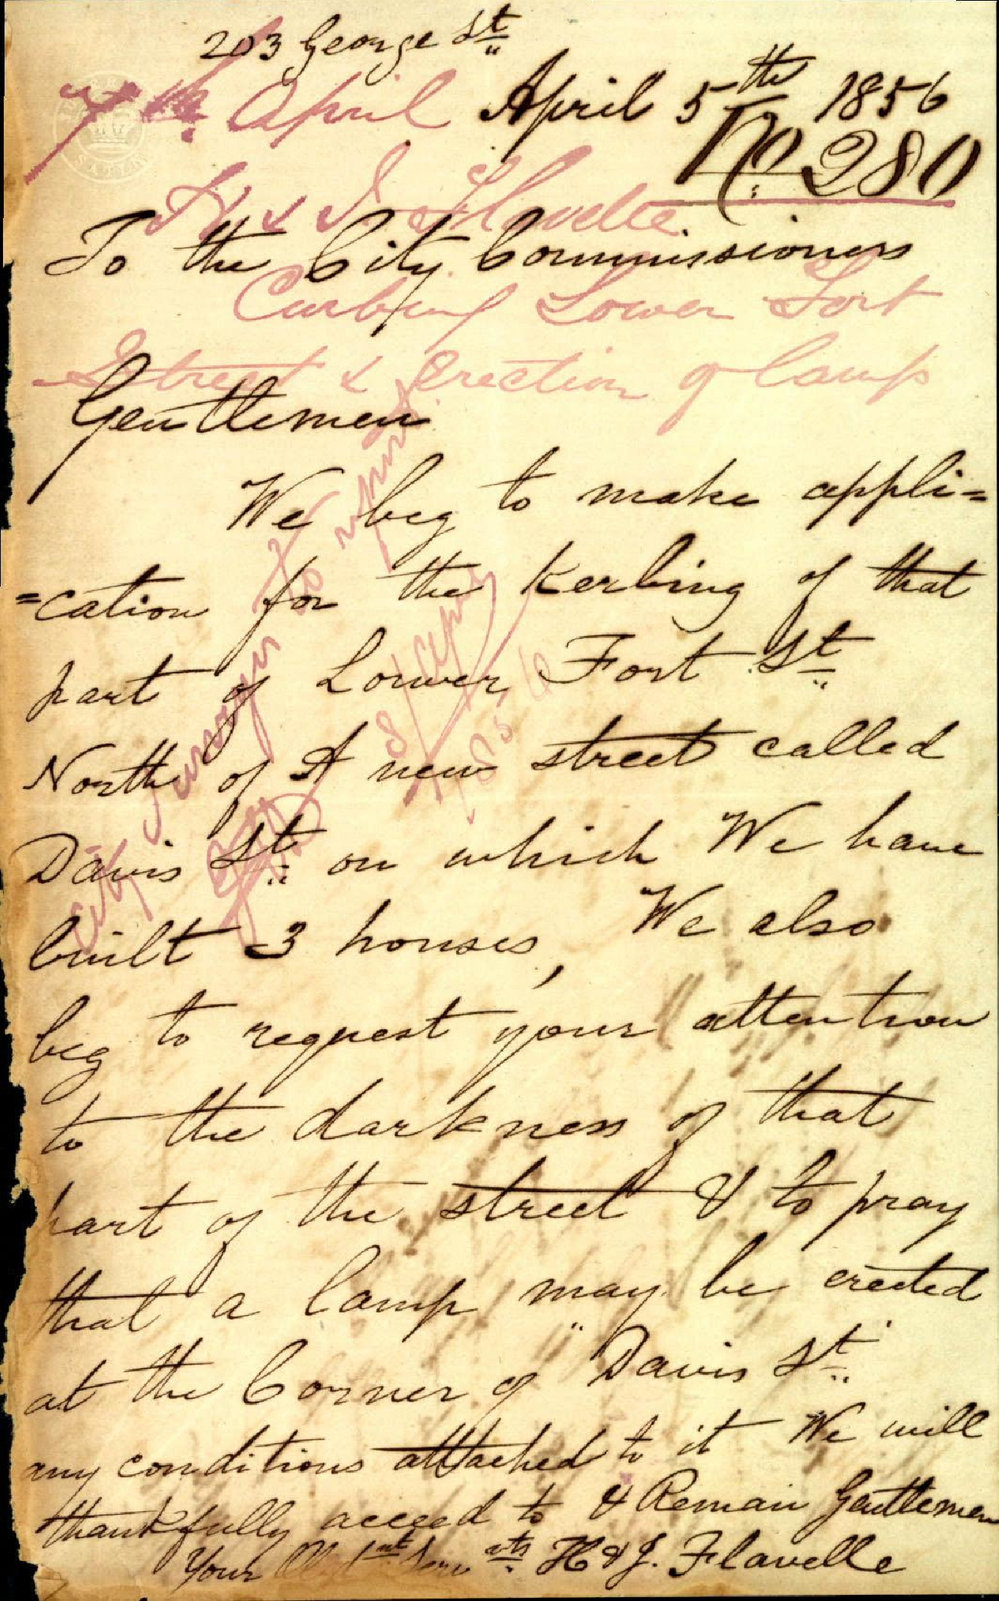 203 George St
7th April
April 5th 1856
No. 280
H & J Flavelle
To the City Commissioners
Curbing Lower Fort
Street & Erection of lamp
Gentlemen
We beg to make appli=
=cation for the Kerbing of that
part of Lower Fort St
North of A new street called
Davis St. on which We have
built 3 houses, We also
beg to request your attention
to the darkness of that
part of the street & to pray
that a lamp may be erected
at the Corner of Davis St.
any conditions attached to it We will
thankfully acceed to & Remain Gentlemen
Your Obdnt Servnts H & J. Flavelle
City Surveyor to report
8/April/
1856